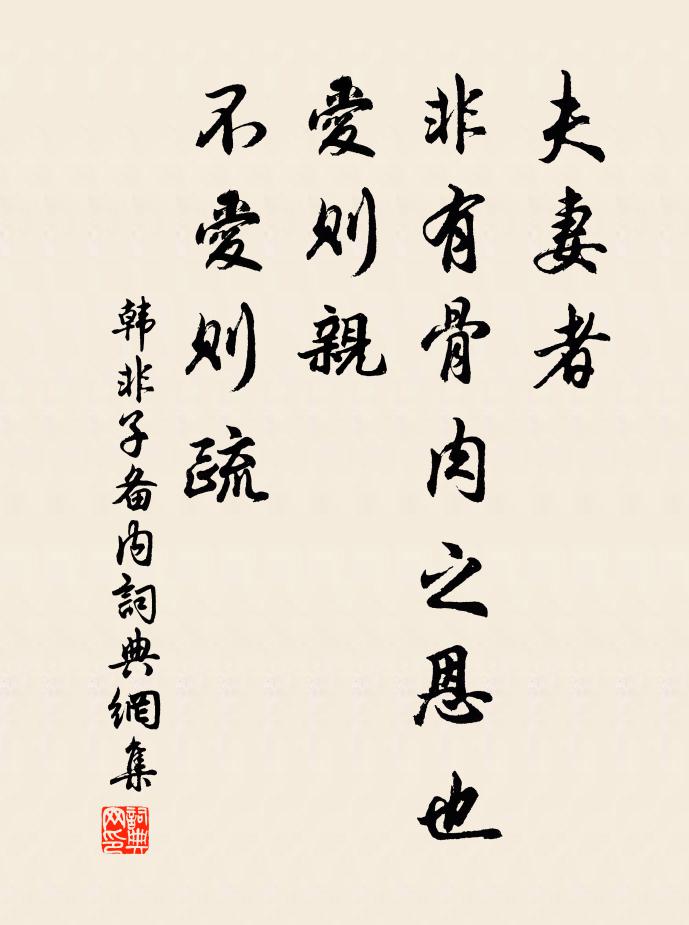 夫妻者
非有骨肉之恩也
愛則親
不愛則疏
韩非子备内詞典網集
詞典網印